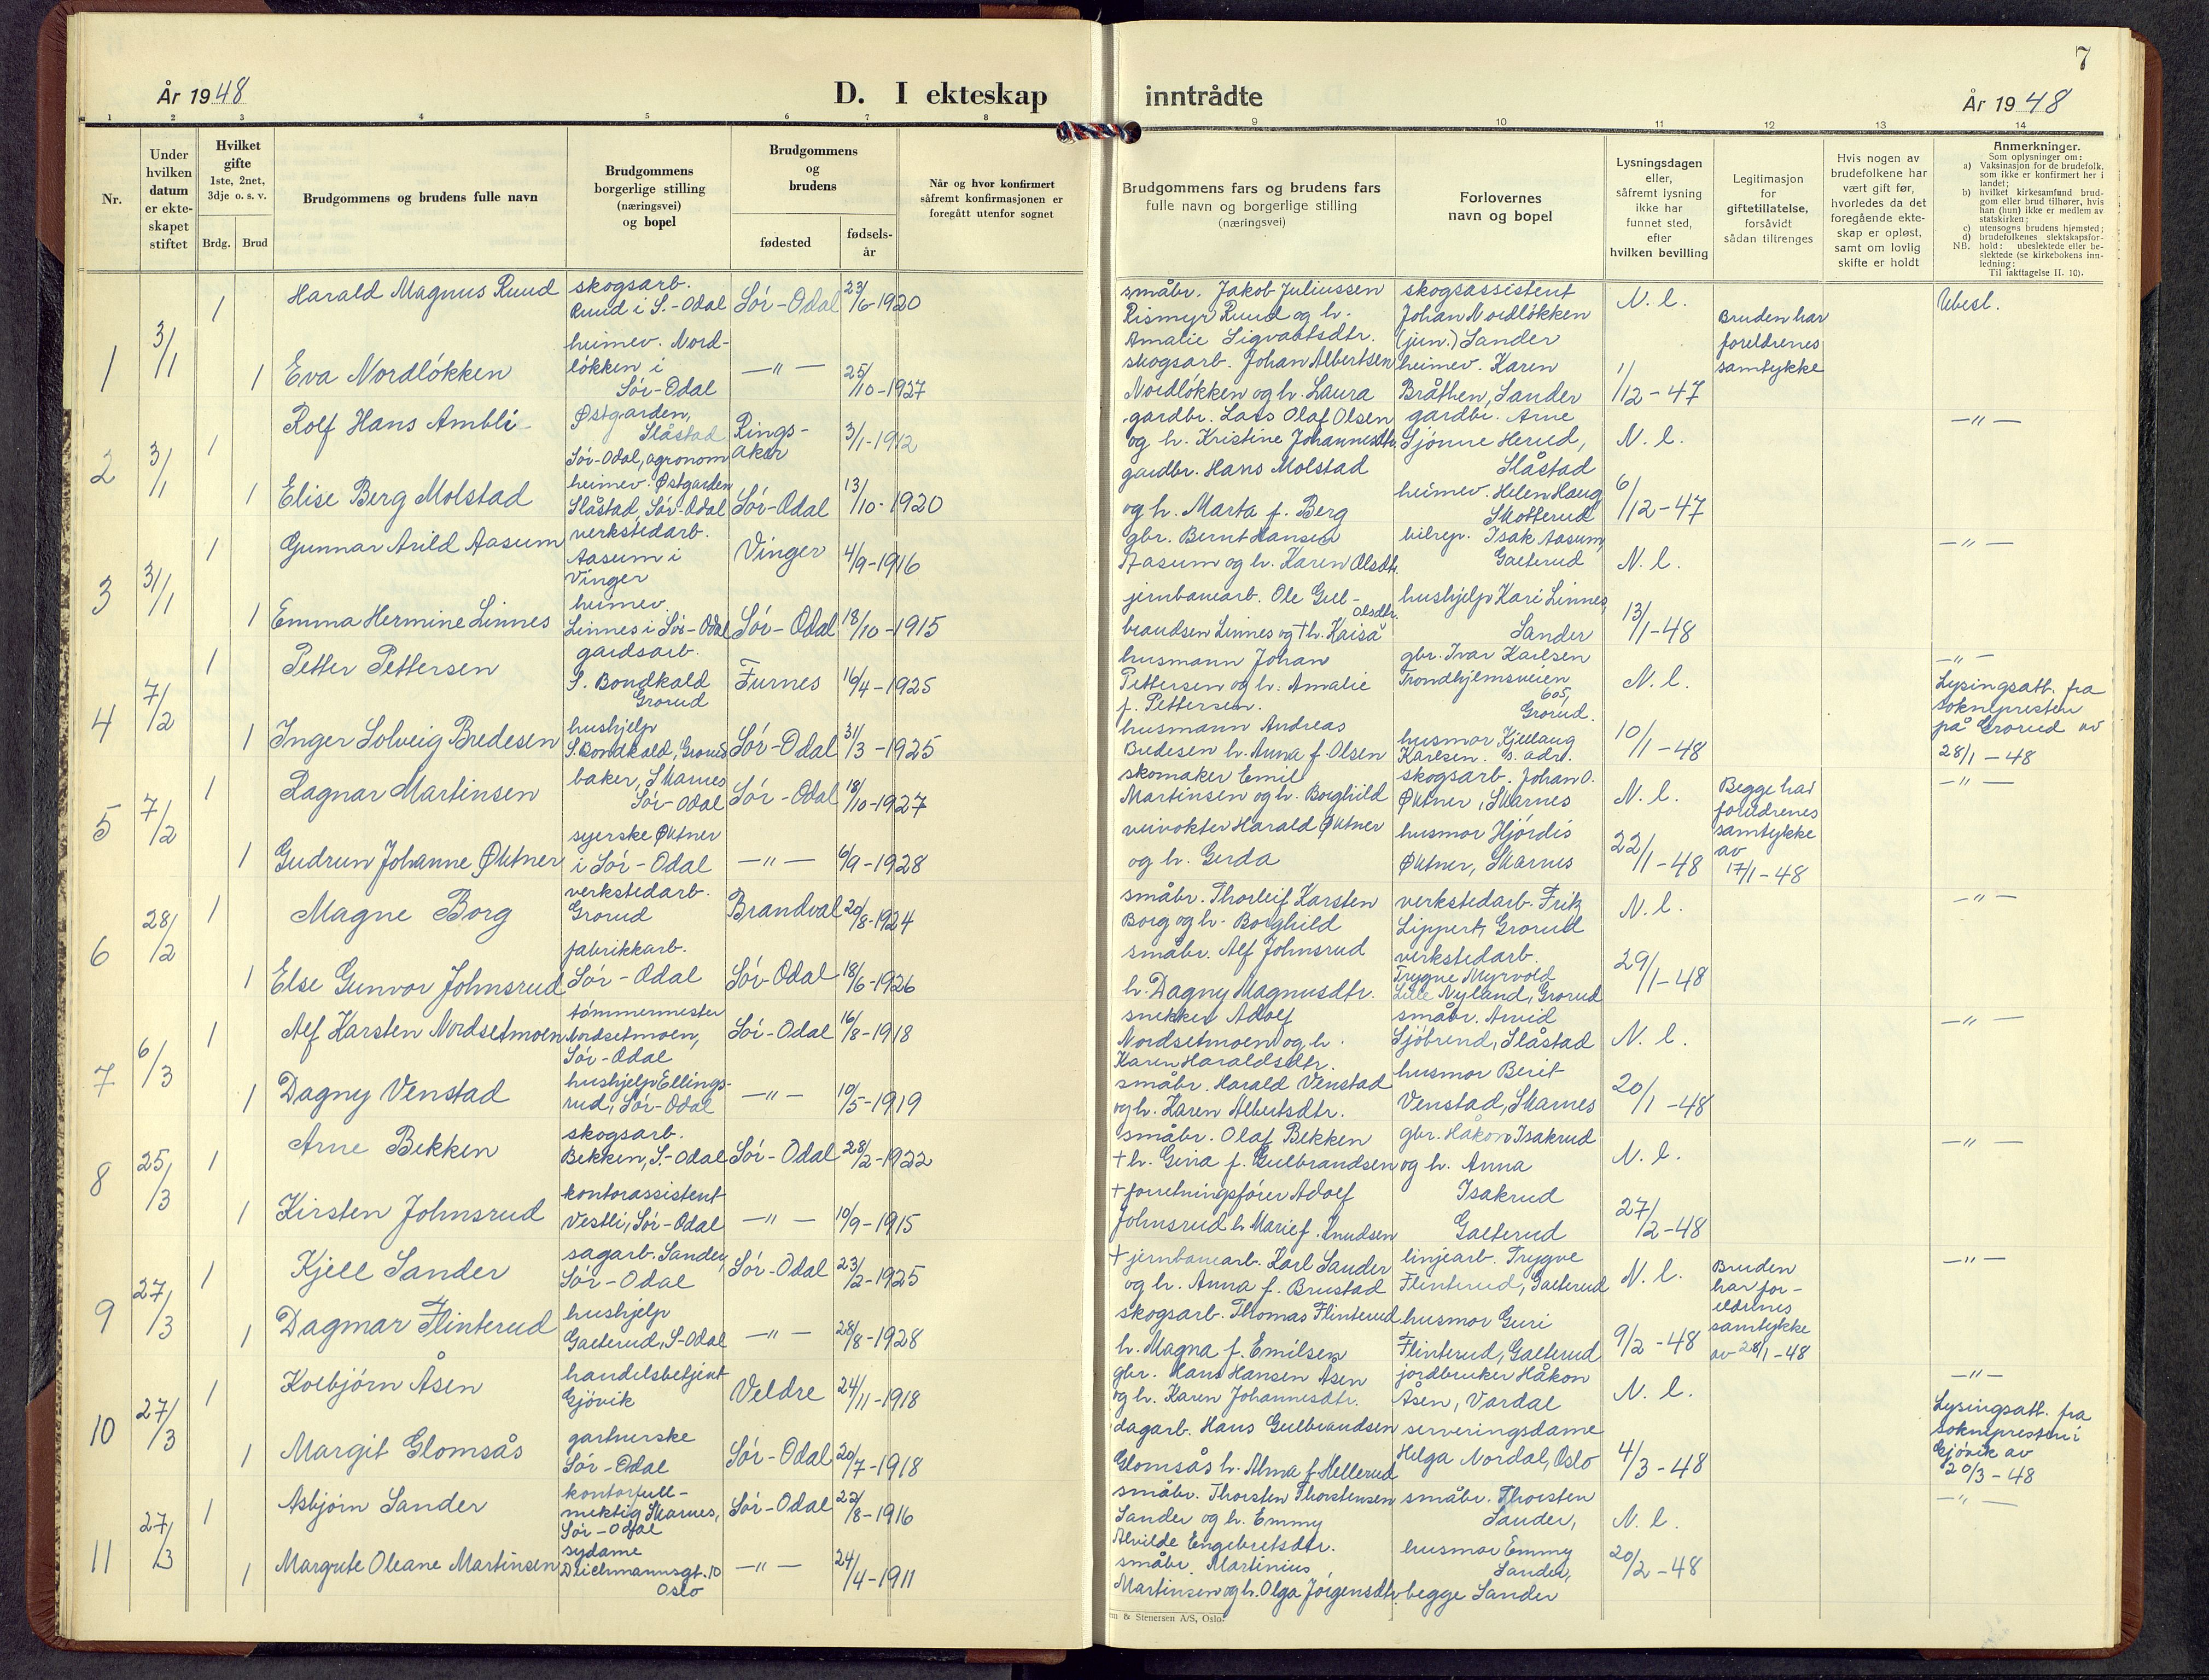 År 1948
D. I ekteskap
1 2 3 4 5 6 7 8
Nr.
Under
hvilken
datum
er ekte-
skapet
stiftet
Hvilket
gifte
1ste, 2net,
3dje o. s. v.
Brdg. Brud
Brudgommens og brudens fulle navn
Brudgommens
borgerlige stilling
(næringsvei)
og bopel
Brudgommens
og
brudens
fødested
fødsels-
år
Når og hvor konfirmert
såfremt konfirmasjonen er
foregått utenfor sognet
1 3/1 1 Harald Magnus Ruud
skogsarb.
Ruud i S.-Odal
Sør-Odal 23/6-1920
1 Eva Nordløkken
heimev. Nord-
løkken i
Sør-Odal
—"— 25/10-1927
2 3/1 1 Rolf Hans Ambli
Østgarden,
Slåstad
Sør-Odal, agronom
Rings-
aker
3/1-1912
1 Elise Berg Molstad
heimev. Østgarden
Slåstad, Sør-Odal
Sør-Odal 13/10-1920
3 31/1 1 Gunnar Arild Aasum
verkstedarb.
Aasum i
Vinger
Vinger 4/9-1916
1 Emma Hermine Linnes
heimev.
Linnes i Sør-Odal
Sør-Odal 18/10-1915
4 7/2 1 Petter Pettersen
gardsarb.
S. Bondkald
Grorud
Furnes 16/4-1925
1 Inger Solveig Bredesen
hushjelp
S. Bondkald, Grorud
Sør-Odal 31/3-1925
5 7/2 1 Ragnar Martinsen
baker, Skarnes
Sør-Odal
Sør-Odal 18/10-1927
1 Gudrun Johanne Øktner
syerske Øktner
i Sør-Odal
—"— 6/9-1928
6 28/2 1 Magne Borg
verkstedarb.
Grorud
Brandval 20/8-1924
1 Else Gunvor Johnsrud
fabrikkarb.
Sør-Odal
Sør-Odal 18/6-1926
7 6/3 1 Alf Karsten Nordsetmoen
tømmermester
Nordsetmoen,
Sør-Odal
Sør-Odal 16/8-1918
1 Dagny Venstad
hushjelp Ellings-
rud, Sør-Odal
—"— 10/5-1919
8 25/3 1 Arne Bekken
skogsarb.
Bekken, S.-Odal
Sør-Odal 28/2-1922
1 Kirsten Johnsrud
kontorassistent
Vestli, Sør-Odal
—"— 10/9-1915
9 27/3 1 Kjell Sander
sagarb. Sander,
Sør-Odal
Sør-Odal 23/2-1925
1 Dagmar Flinterud
hushjelp
Galterud, S-Odal
—"— 28/8-1928
10 27/3 1 Kolbjørn Åsen
handelsbetjent
Gjøvik
Veldre 24/11-1918
1 Margit Glomsås
gartnerske
Sør-Odal
Sør-Odal 20/7-1918
11 27/3 1 Asbjørn Sander
kontorfull-
mektig Skarnes,
Sør-Odal
Sør-Odal 22/8-1916
1 Margrete Oleane Martinsen
sydame
Deichmannsgt. 10
Oslo
—"— 24/4-1911
7
inntrådte
År 1948
9 10 11 12 13 14
Brudgommens fars og brudens fars
fulle navn og borgerlige stilling
(næringsvei)
Forlovernes
navn og bopel
Lysningsdagen
eller,
såfremt lysning
ikke har
funnet sted,
efter
hvilken bevilling
Legitimasjon
for
giftetillatelse,
forsåvidt
sådan tiltrenges
Hvis nogen av
brudefolkene har
vært gift før,
hvorledes da det
foregående ekte-
skap er opløst,
samt om lovlig
skifte er holdt
Anmerkninger.
Som oplysninger om:
a) Vaksinasjon for de brudefolk,
som ikke er konfirmert her i
landet;
b) hvilket kirkesamfund brud-
gom eller brud tilhører, hvis
han (hun) ikke er medlem av
statskirken;
c) utensogns brudens hjemsted;
d) brudefolkenes slektskapsfor-
hold: ubeslektede eller be-
slektede (se kirkebokens inn-
ledning;
NB. Til iakttagelse II. 10).
småbr. Jakob Juliussen
Rismyr Ruud og h.
Amalie Sigvartsdtr.
skogsassistent
Johan Nordløkken
(jun.) Sander
N. l.
Bruden har
foreldrenes
samtykke
Ubesl.
skogsarb. Johan Albertsen
Nordløkken og h. Laura
heimev. Karen
Bråthen, Sander
1/12-47
gardbr. Lars Olaf Olsen
og h. Kristine Johannesdtr.
gardbr. Arne
Sjønne Herud,
Slåstad
N. l.
—"—
gardbr. Hans Molstad
og h. Marta f. Berg
heimev. Helen Haug
Skotterud
6/12-47
gbr. Bernt Hansen
Aasum og h. Karen Olsdtr.
bilrep. Isak Aasum,
Galterud
N. l.
—"—
jernbanearb. Ole Gul-
brandsen Linnes og †h. Kaisa Olsdtr.
hushjelp Kari Linnes,
Sander
13/1-48
husmann Johan
Pettersen og h. Amalie
f. Pettersen.
gbr. Ivar Karlsen
Trondhjemsveien
605,
Grorud.
N. l.
—"—
Lysingsatt. fra
soknepresten
på Grorud av
28/1-48
husmann Andreas
Bredesen h. Anna f. Olsen
husmor Kjellaug
Karlsen. s. adr.
10/1-48
skomaker Emil
Martinsen og h. Borghild
skogsarb. Johan O.
Øktner, Skarnes
N. l.
Begge har
foreldrenes
samtykke
av
17/1-48
—"—
veivokter Harald Øktner
og h. Gerda
husmor Hjørdis
Øktner, Skarnes
22/1-48
småbr. Thorleif Karsten
Borg og h. Borghild
verkstedarb. Fritz
Lippert, Grorud
N. l.
—"—
småbr. Alf Johnsrud
h. Dagny Magnusdtr.
verkstedarb.
Trygve Myrvold
Lille Nyland, Grorud
29/1-48
snekker Adolf
Nordsetmoen og h.
Karen Haraldsdtr.
småbr. Arvid
Sjøbrend, Slåstad
N. l.
—"—
småbr. Harald Venstad
og h. Karen Albertsdtr.
husmor Berit
Venstad, Skarnes
20/1-48
småbr. Olaf Bekken
†h. Gina f. Gulbrandsen
gbr. Håkon Isakrud
og h. Anna
Isakrud
Galterud
N. l.
—"—
†forretningsfører Adolf
Johnsrud h. Marie f. Knudsen
27/2-48
†jernbanearb. Karl Sander
og h. Anna f. Brustad
linjearb. Trygve
Flinterud, Galterud
N. l.
Bruden
har for-
eldrenes
samtykke
av 28/1-48
—"—
skogsarb. Thomas Flinterud
h. Magna f. Emilsen
husmor Guri
Flinterud, Galterud
9/2-48
gbr. Hans Hansen Åsen
og h. Karen Johannesdtr.
jordbruker Håkon
Åsen, Vardal
N. l.
—"—
Lysingsatt. fra
soknepresten i
Gjøvik av
20/3-48
dagarb. Hans Gulbrandsen
Glomsås h. Alma f. Hellerud
serveringsdame
Helga Nordal, Oslo
4/3-48
småbr. Thorsten Thorstensen
Sander og h. Emmy
Alvilde Engebretsdtr.
småbr. Thorsten
Sander,
N. l.
—"—
småbr. Martinius
Martinsen og h. Olga Jørgensdtr.
husmor Emmy
Sander,
begge Sander
20/2-48
& Stenersen A/S, Oslo.